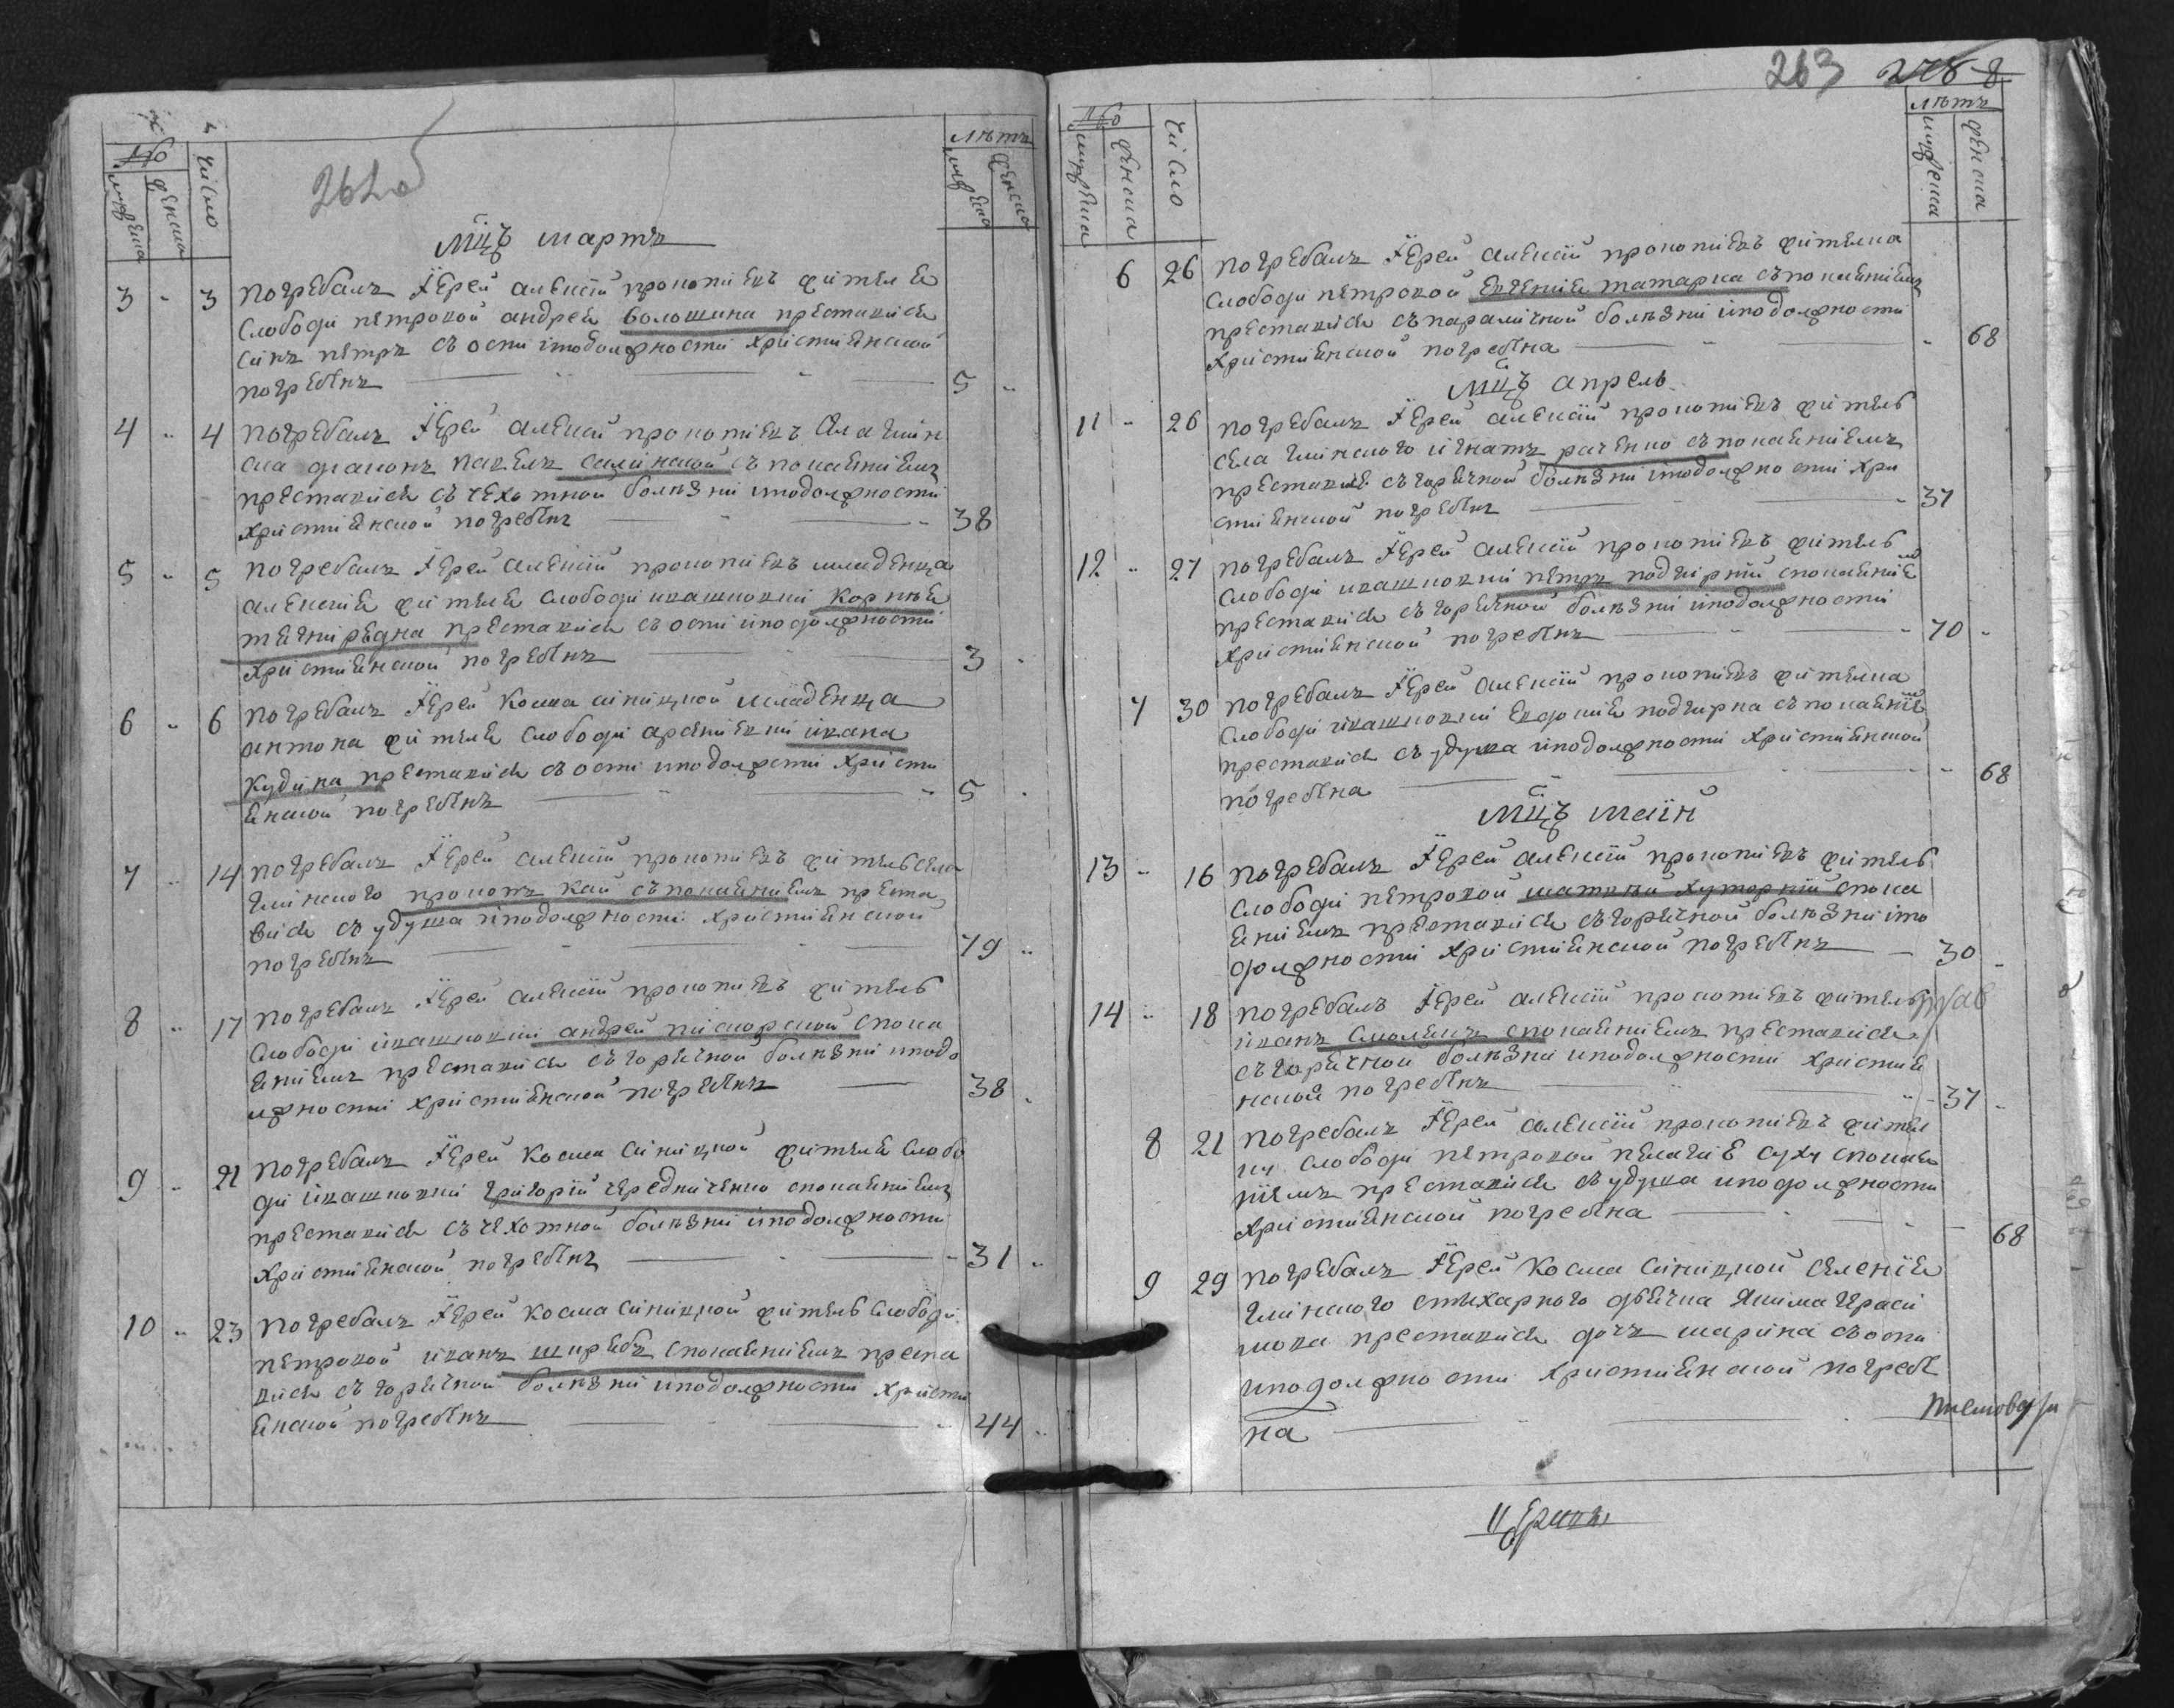 262 об
№
мужеска
женска
число
лѣтъ
мужеска
женска
Мцъ мартъ
3 " 3 погребалъ Їерей алексій прокопіевъ жителя
слободи петровой андрея волошина преставися
синъ петръ съ оспи иподолжности христіянской
погребенъ 5 "
4 " 4 погребалъ Їерей алексій прокопіевъ
діаконъ павелъ съ покаяніемъ
преставися съ чехотной болѣзни иподолжности
христіянской погребенъ 38
5 " 5 погребалъ Їерей алексій прокопіевъ младенца
алексія жителя слободи ивашковки корнѣя
преставися съ оспи иподолжности
христіянской погребенъ 3 "
6 " 6 погребалъ Їерей косма младенца
антона жителя слободи ивана
кудина преставися съ оспи иподолжсти христи
янской погребенъ 5 "
7 " 14 погребалъ Їерей алексій прокопіевъ житель села
прокопъ кай съ покаяніемъ преста
вися съ удуха иподолжности христіянской
погребенъ 79 "
8 " 17 погребалъ Їерей алексій прокопіевъ житель
слободи ивашковки андрей пискорской спока
яніемъ преставися съ горячной болѣзни иподо
лжности христіянской погребенъ 38 "
9 " 21 погребалъ Їерей косма жителя слобо
ди ивашковки григорій чередниченко спокаяніемъ
преставися съ чехотной болѣзни иподолжности
христіянской погребенъ 31 "
10 " 23 погребалъ Їерей косма житель слободи
петровой иванъ спокаяніемъ преста
вися съ горячной болѣзни иподолжности христи
янской погребенъ 44 "
263
№
мужеска
женска
число
лѣтъ
мужеска
женска
6 26 погребалъ Їерей алексій прокопіевъ жителка
слободи петровой татарка съпокаяніемъ
преставися съ параличной болѣзни иподолжности
христіянской погребена " 68
Мцъ апрель
11 " 26 погребалъ Їерей алексій прокопіевъ житель
села игнатъ раченко съпокаяніемъ
преставися съ горячной болѣзни иподолжности хри
стіянской погребенъ 37
12 " 27 погребалъ Їерей алексій прокопіевъ житель
слободи ивашковки петръ подчирній спокаяніе
преставися съ горячной болѣзни иподолжности
христіянской погребенъ 70 "
7 30 погребалъ Їерей алексій прокопіевъ жителка
слободи ивашковки евдокия подчирна съпокаяніе
преставися съ удуха иподолжности христіянской
погребена " 68
Мцъ маій
13 " 16 погребалъ Їерей алексій прокопіевъ житель
слободи петровой матвей хуторній спока
яніемъ преставися съгорячной болѣзни ипо
должности христіянской погребенъ 30 "
14 " 18 погребалъ Їерей алексій прокопіевъ житель
иванъ спокаяніемъ преставися
съ горячной болѣзни иподолжности христия
нской погребенъ 37 "
8 21 погребалъ Їерей алексій прокопіевъ жител
ку слободи петровой пелагія суху спокая
ніемъ преставися съ удуха иподолжности
христіянской погребена 68
9 29 погребалъ Їерей косма селенія
стихарного дьячка якима гераси
мова преставися дочъ марина съоспи
иподолжности христіянской погребе
на